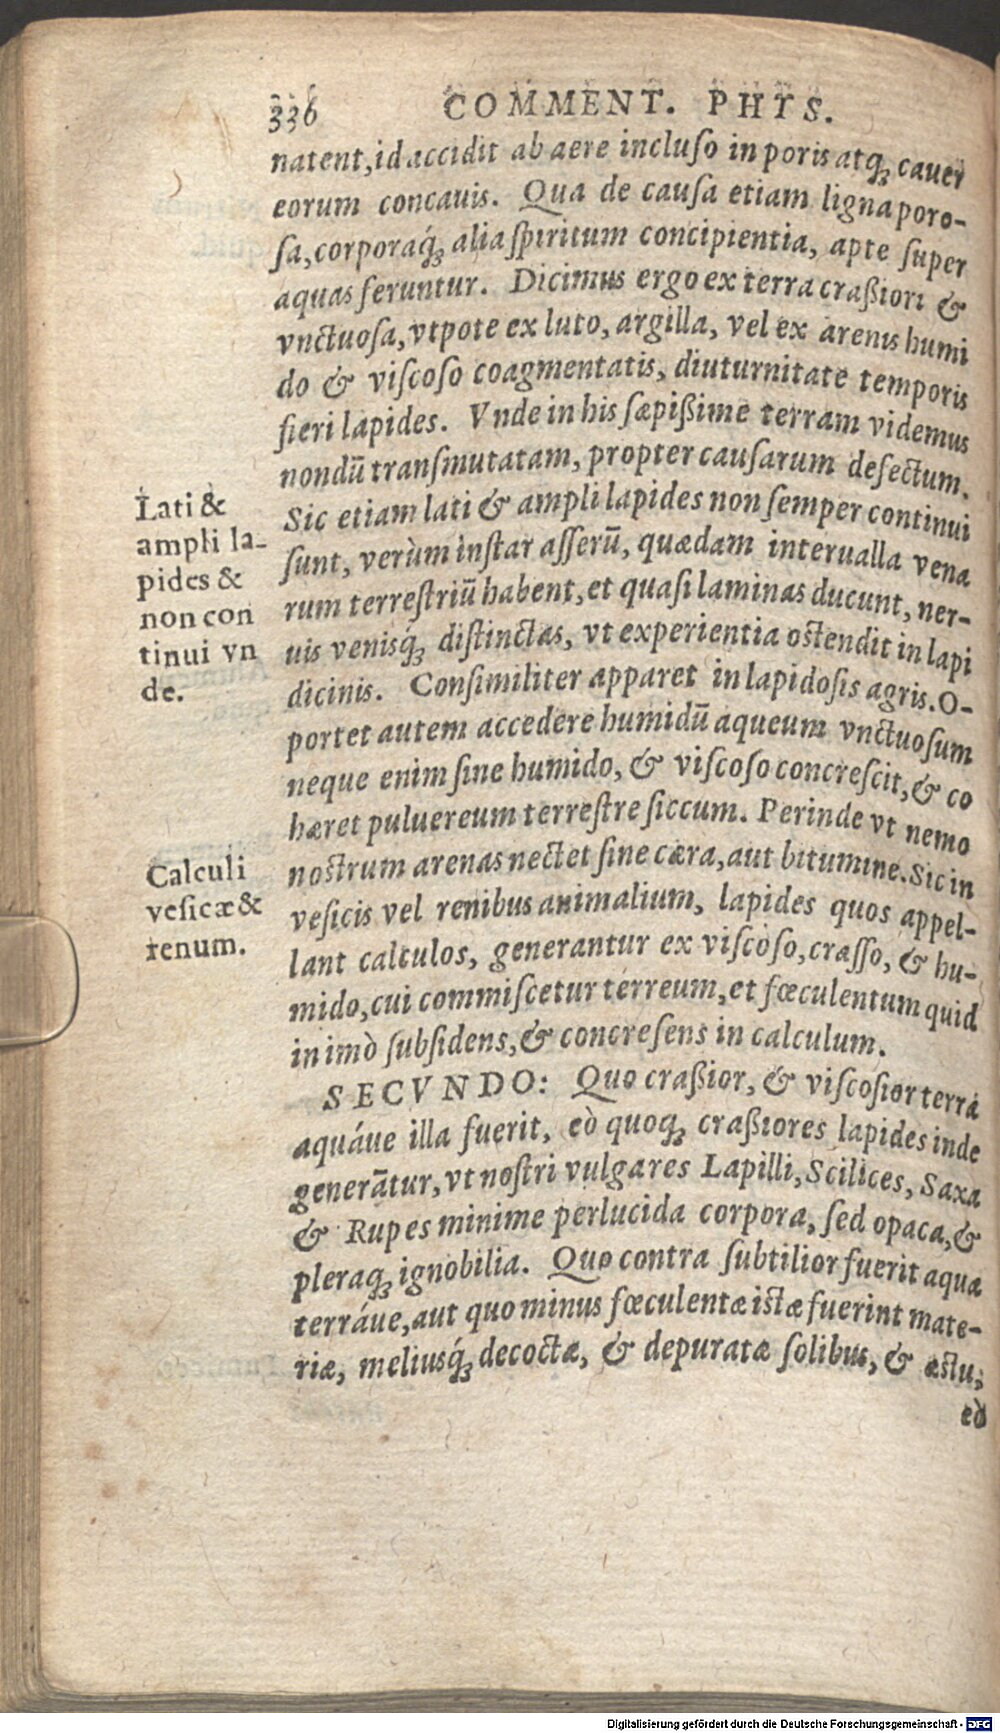 336 COMMENT. PHYS.
natent, id accidit ab aere incluso in poris atq́; cauer
eorum concauis. Qua de causa etiam ligna poro-
sa, corporaq́; alia spiritum concipientia, apte super
aquas feruntur. Dicimus ergo ex terra craßiori &
vnctuosa, vtpote ex luto, argilla, vel ex arenis humi
do & viscoso coagmentatis, diuturnitate temporis
fieri lapides. Vnde in his sæpißime terram videmus
nondū transmutatam, propter causarum defectum.
Lati &
ampli la-
pides &
non con
tinui vn
de.
Sic etiam lati & ampli lapides non semper continui
sunt, verùm instar asserū, quædam interualla vena
rum terrestriū habent, et quasi laminas ducunt, ner-
uis venisq́; distinctas, vt experientia ostendit in lapi
dicinis. Consimiliter apparet in lapidosis agris. O-
portet autem accedere humidū aqueum vnctuosum
neque enim sine humido, & viscoso concrescit, & co
hæret puluereum terrestre siccum. Perinde vt nemo
Calculi
vesicæ &
renum.
nostrum arenas nectet sine cæra, aut bitumine. Sic in
vesicis vel renibus animalium, lapides quos appel-
lant calculos, generantur ex viscoso, crasso, & hu-
mido, cui commiscetur terreum, et fœculentum quid
in imò subsidens, & concresens in calculum.
SECVNDO: Quo craßior, & viscosior terra
aquáue illa fuerit, eò quoq́; craßiores lapides inde
generãtur, vt nostri vulgares Lapilli, Scilices, Saxa
& Rupes minime perlucida corpora, sed opaca, &
pleraq́; ignobilia. Quo contra subtilior fuerit aqua
terráue, aut quo minus fœculentæ istæ fuerint mate-
riæ, meliusq́; decoctæ, & depuratæ solibus, & æstu,
eò
Digitalisierung gefördert durch die Deutsche Forschungsgemeinschaft - DFG